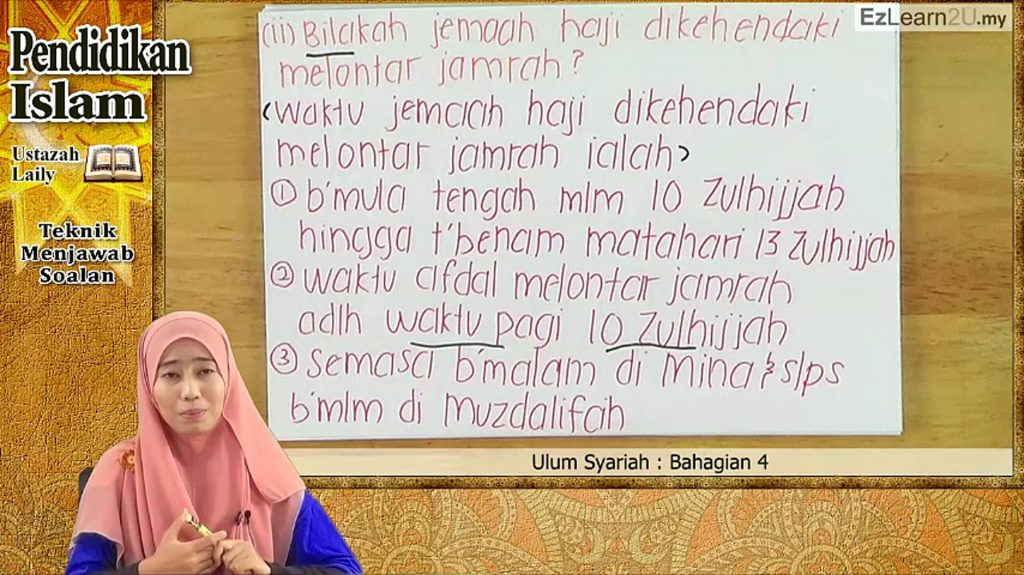 Pendidikan
Islam
Ustazah
Laily
Teknik
Menjawab
Soalan
EzLearn2U.my
(ii) Bilakah jemaah haji dikehendaki
melontar jamrah?
(waktu jemaah haji dikehendaki
melontar jamrah ialah)
① b'mula tengah mlm 10 Zulhijjah
hingga t'benam matahari 13 Zulhijjah
② waktu afdal melontar jamrah
adlh waktu pagi 10 Zulhijjah
③ semasa b'malam di Mina & slps
b'mlm di Muzdalifah
Ulum Syariah : Bahagian 4